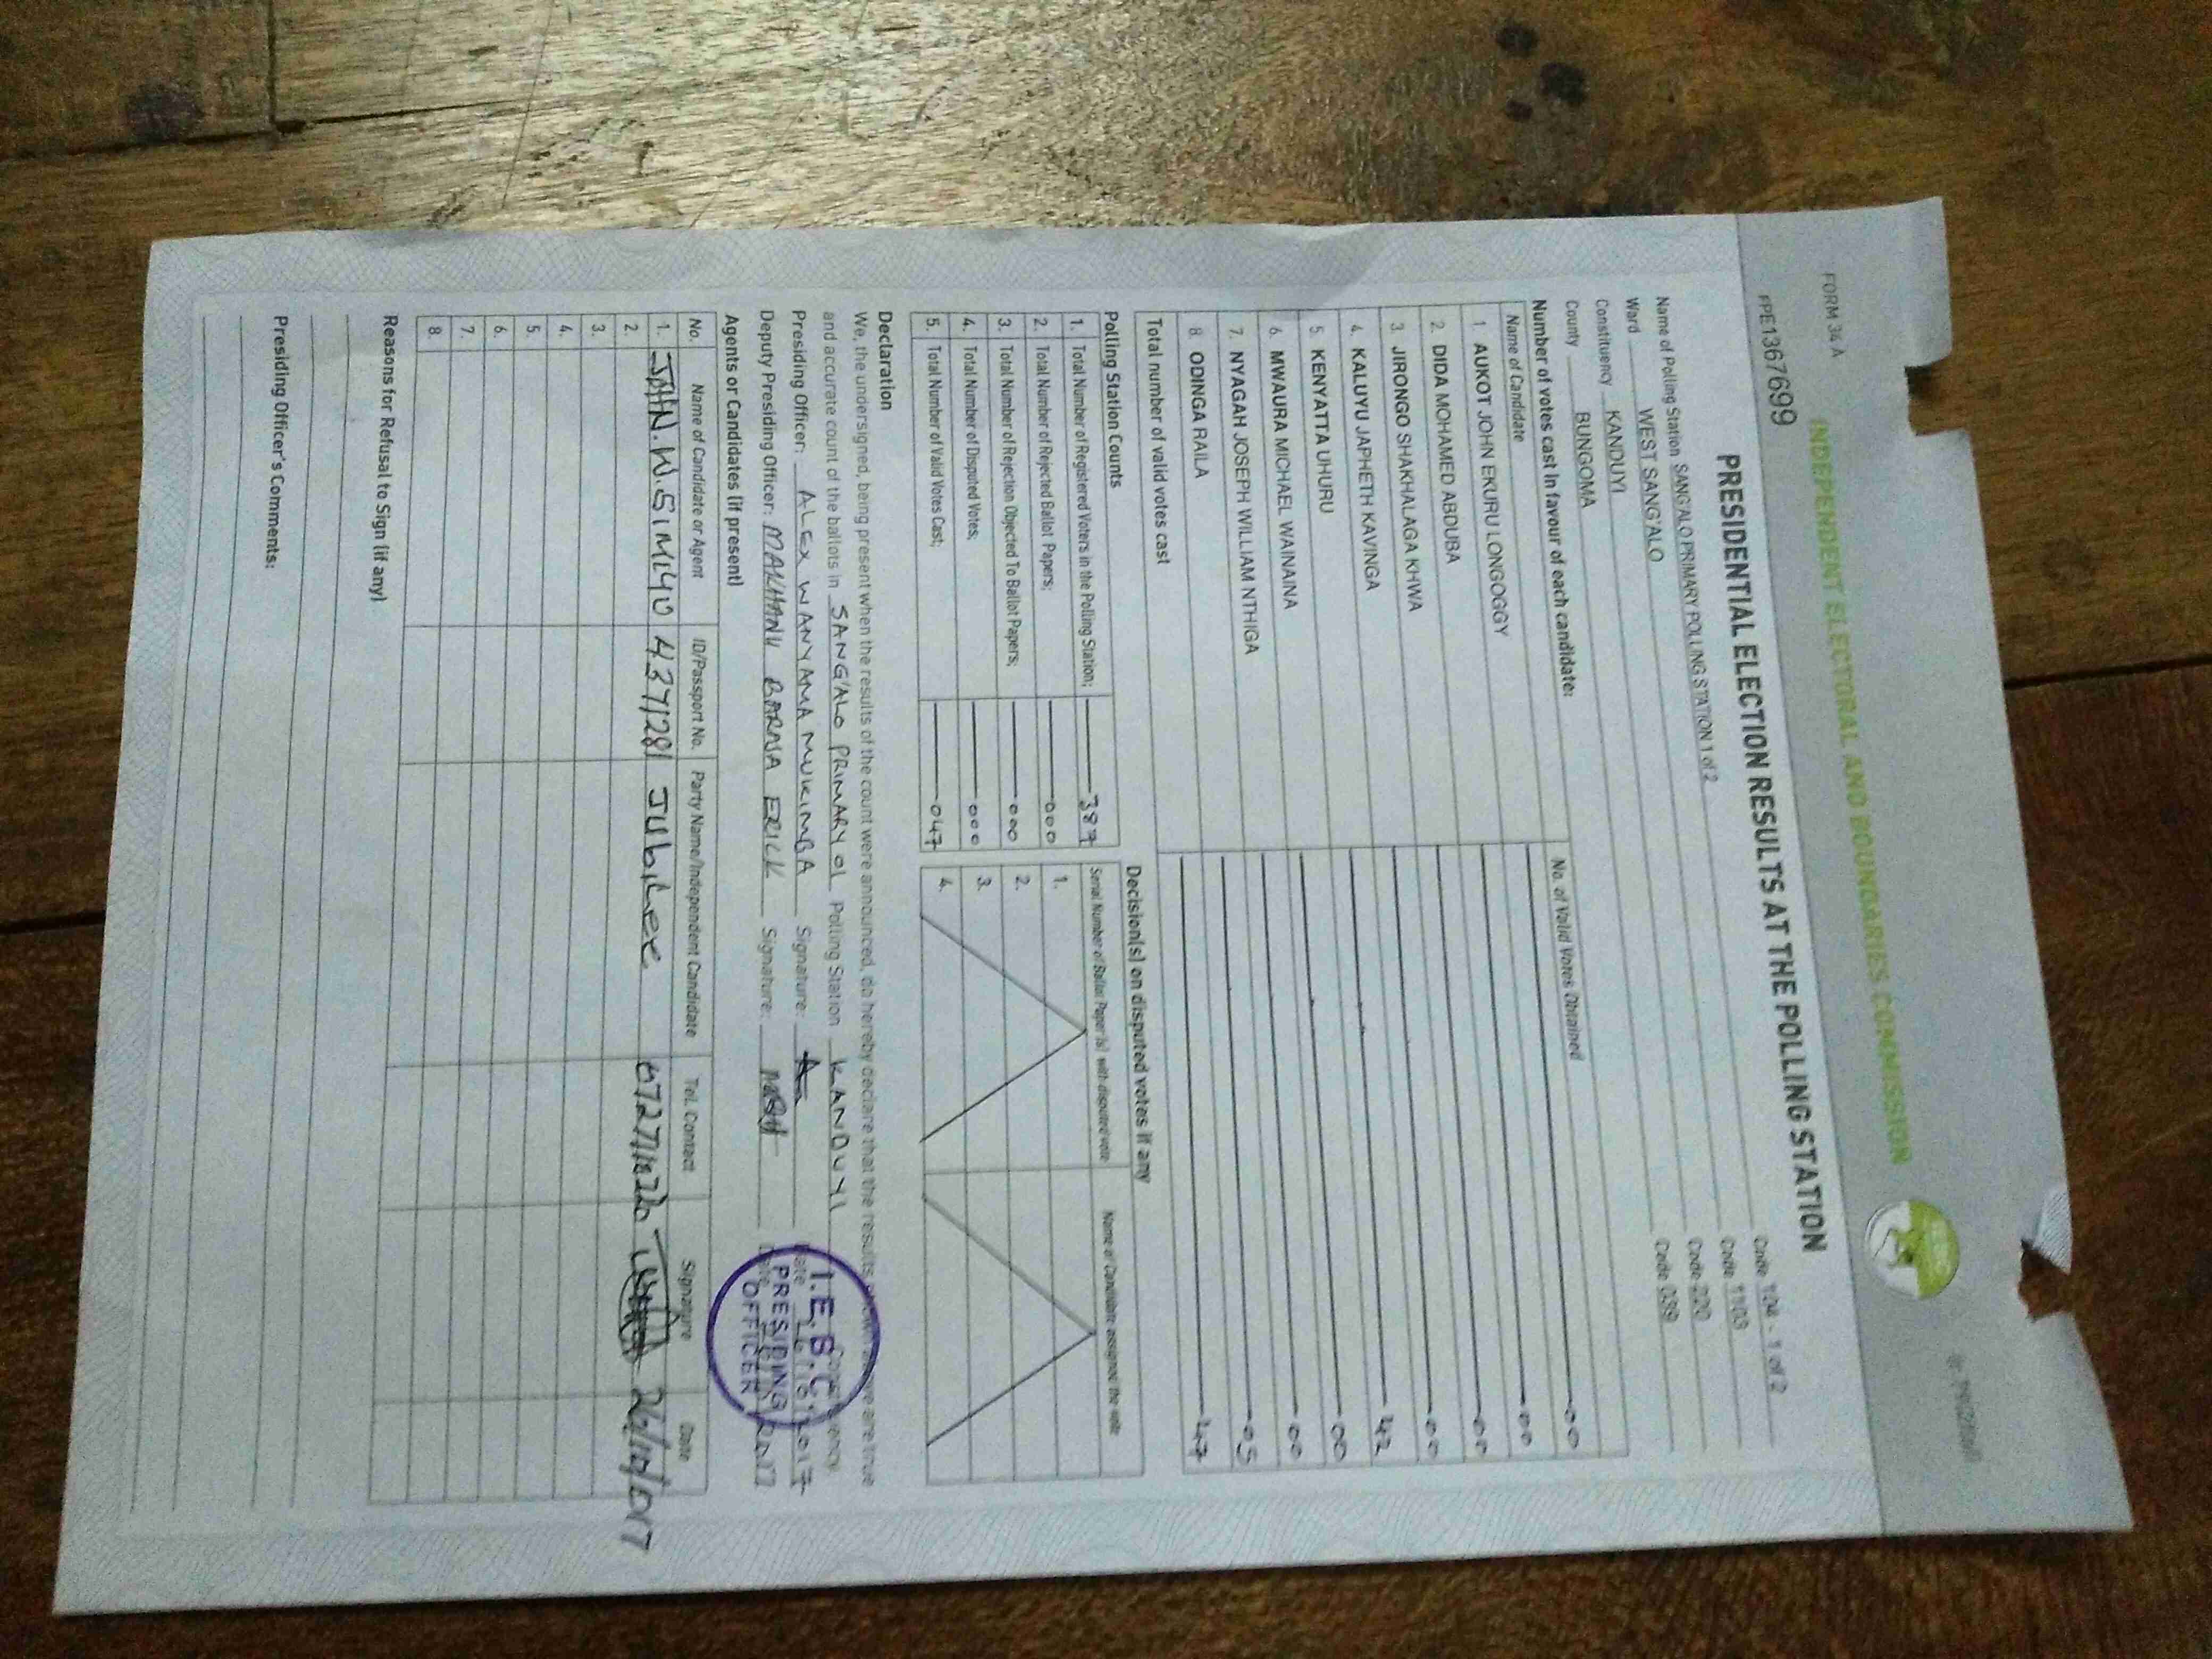 FORM 34 A
INDEPENDENT ELECTORAL AND BOUNDARIES COMMISSION
PPE1367699
PRESIDENTIAL ELECTION RESULTS AT THE POLLING STATION
Name of Polling Station SANG'ALO PRIMARY POLLING STATION 1 of 2 Code 104 - 1 of 2
Ward WEST SANG'ALO Code 1103
Constituency KANDUYI Code 220
County BUNGOMA Code 039
Number of votes cast in favour of each candidate:
Name of Candidate No. of Valid Votes Obtained
1. AUKOT JOHN EKURU LONGOGGY 00
2. DIDA MOHAMED ABDUBA 00
3. JIRONGO SHAKHALAGA KHWA 00
4. KALUYU JAPHETH KAVINGA 00
5. KENYATTA UHURU 42
6. MWAURA MICHAEL WAINAINA 00
7. NYAGAH JOSEPH WILLIAM NTHIGA 00
8. ODINGA RAILA 05
Total number of valid votes cast 47
Polling Station Counts
1. Total Number of Registered Voters in the Polling Station;
2. Total Number of Rejected Ballot Papers; 000
3. Total Number of Rejection Objected To Ballot Papers; 000
4. Total Number of Disputed Votes; 000
5. Total Number of Valid Votes Cast; 047
Decision(s) on disputed votes if any
Serial Number of Ballot Paper (s) with disputed vote Name of Candidate assigned the vote
1.
2.
3.
4.
Declaration
We, the undersigned, being present when the results of the count were announced, do hereby declare that the results shown above are true
and accurate count of the ballots in SANG'ALO PRIMARY Polling Station KANDUYI Constituency
Presiding Officer: ALEX WANYAMA MUKIMBA Signature: Date
Deputy Presiding Officer: MAKHANU BARASA ERICK Signature: Date
I.E.B.C
PRESIDING
OFFICER
Agents or Candidates (if present)
No. Name of Candidate or Agent ID/Passport No. Party Name/Independent Candidate Tel. Contact Signature Date
1. JubiLee
2.
3.
4.
5.
6.
7.
8.
Reasons for Refusal to Sign (if any)
Presiding Officer's Comments: